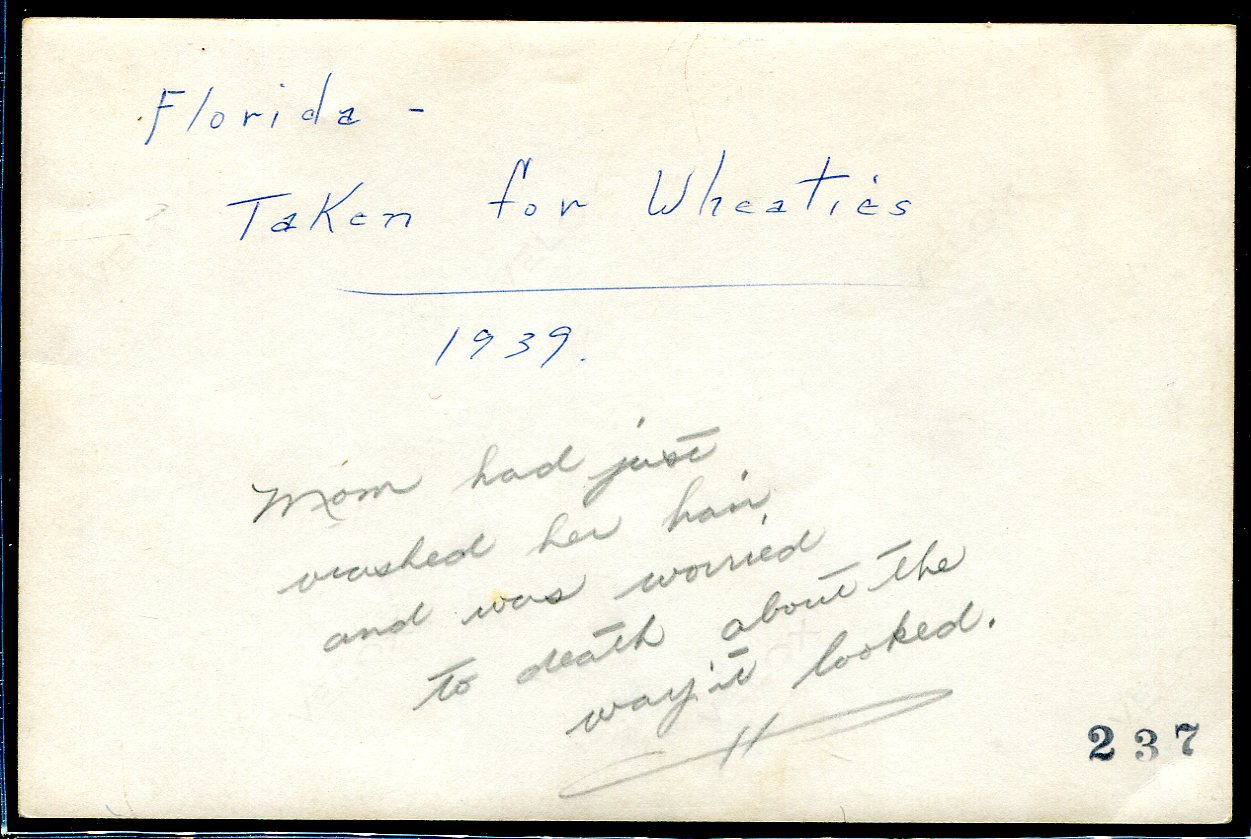 Florida -
Taken for Wheaties
1939.
Mom had just
washed her hair
and was worried
to death about the
way it looked.
237